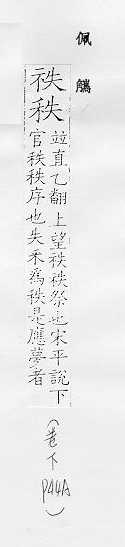 佩觿
袟秩
並直乙翻上望袟袟祭也宋平說下
官秩秩序也失禾為秩是應夢者
(卷下
P44A)